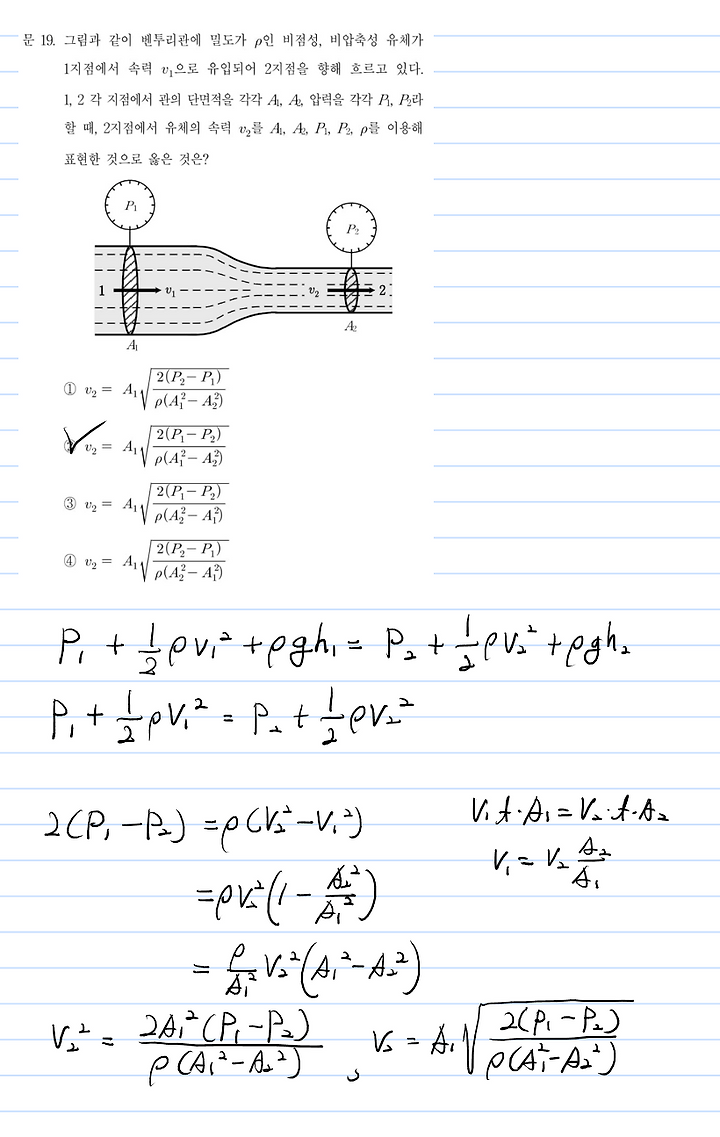 문 19. 그림과 같이 벤투리관에 밀도가 ρ인 비점성, 비압축성 유체가
1지점에서 속력 v₁으로 유입되어 2지점을 향해 흐르고 있다.
1, 2 각 지점에서 관의 단면적을 각각 A₁, A₂, 압력을 각각 P₁, P₂라
할 때, 2지점에서 유체의 속력 v₂를 A₁, A₂, P₁, P₂, ρ를 이용해
표현한 것으로 옳은 것은?
P₁
P₂
1 v₁ v₂ 2
A₂
A₁
① v₂ = A₁√(2(P₂ − P₁) / ρ(A₁² − A₂²))
② v₂ = A₁√(2(P₁ − P₂) / ρ(A₁² − A₂²))
③ v₂ = A₁√(2(P₁ − P₂) / ρ(A₂² − A₁²))
④ v₂ = A₁√(2(P₂ − P₁) / ρ(A₂² − A₁²))
P₁ + 1/2 ρv₁² + ρgh₁ = P₂ + 1/2 ρv₂² + ρgh₂
P₁ + 1/2 ρV₁² = P₂ + 1/2 ρV₂²
2(P₁ − P₂) = ρ(V₂² − V₁²)
V₁t·A₁ = V₂·t·A₂
V₁ = V₂ A₂/A₁
= ρV₂²(1 − A₂²/A₁²)
= ρ/A₁² V₂²(A₁² − A₂²)
V₂² = 2A₁²(P₁ − P₂) / ρ(A₁² − A₂²) , V₂ = A₁√(2(P₁ − P₂) / ρ(A₁² − A₂²))